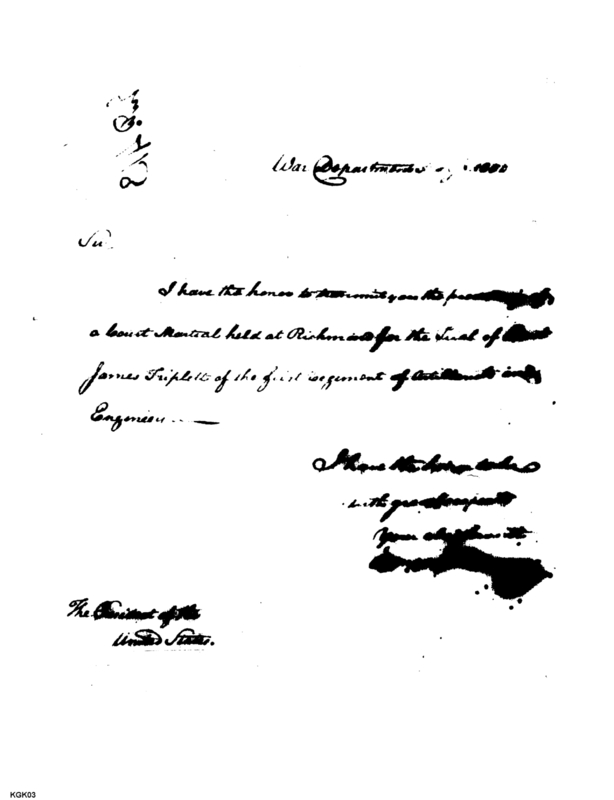 War Department 1800
Sir
I have the honor to transmit you the
a Court Martial held at Richmond for the Trial of
James Triplett of the first regiment of Artillerists and
Engineers
I have the honor to be
with great respect
Your obedient
The President of the
United States.
KGK03